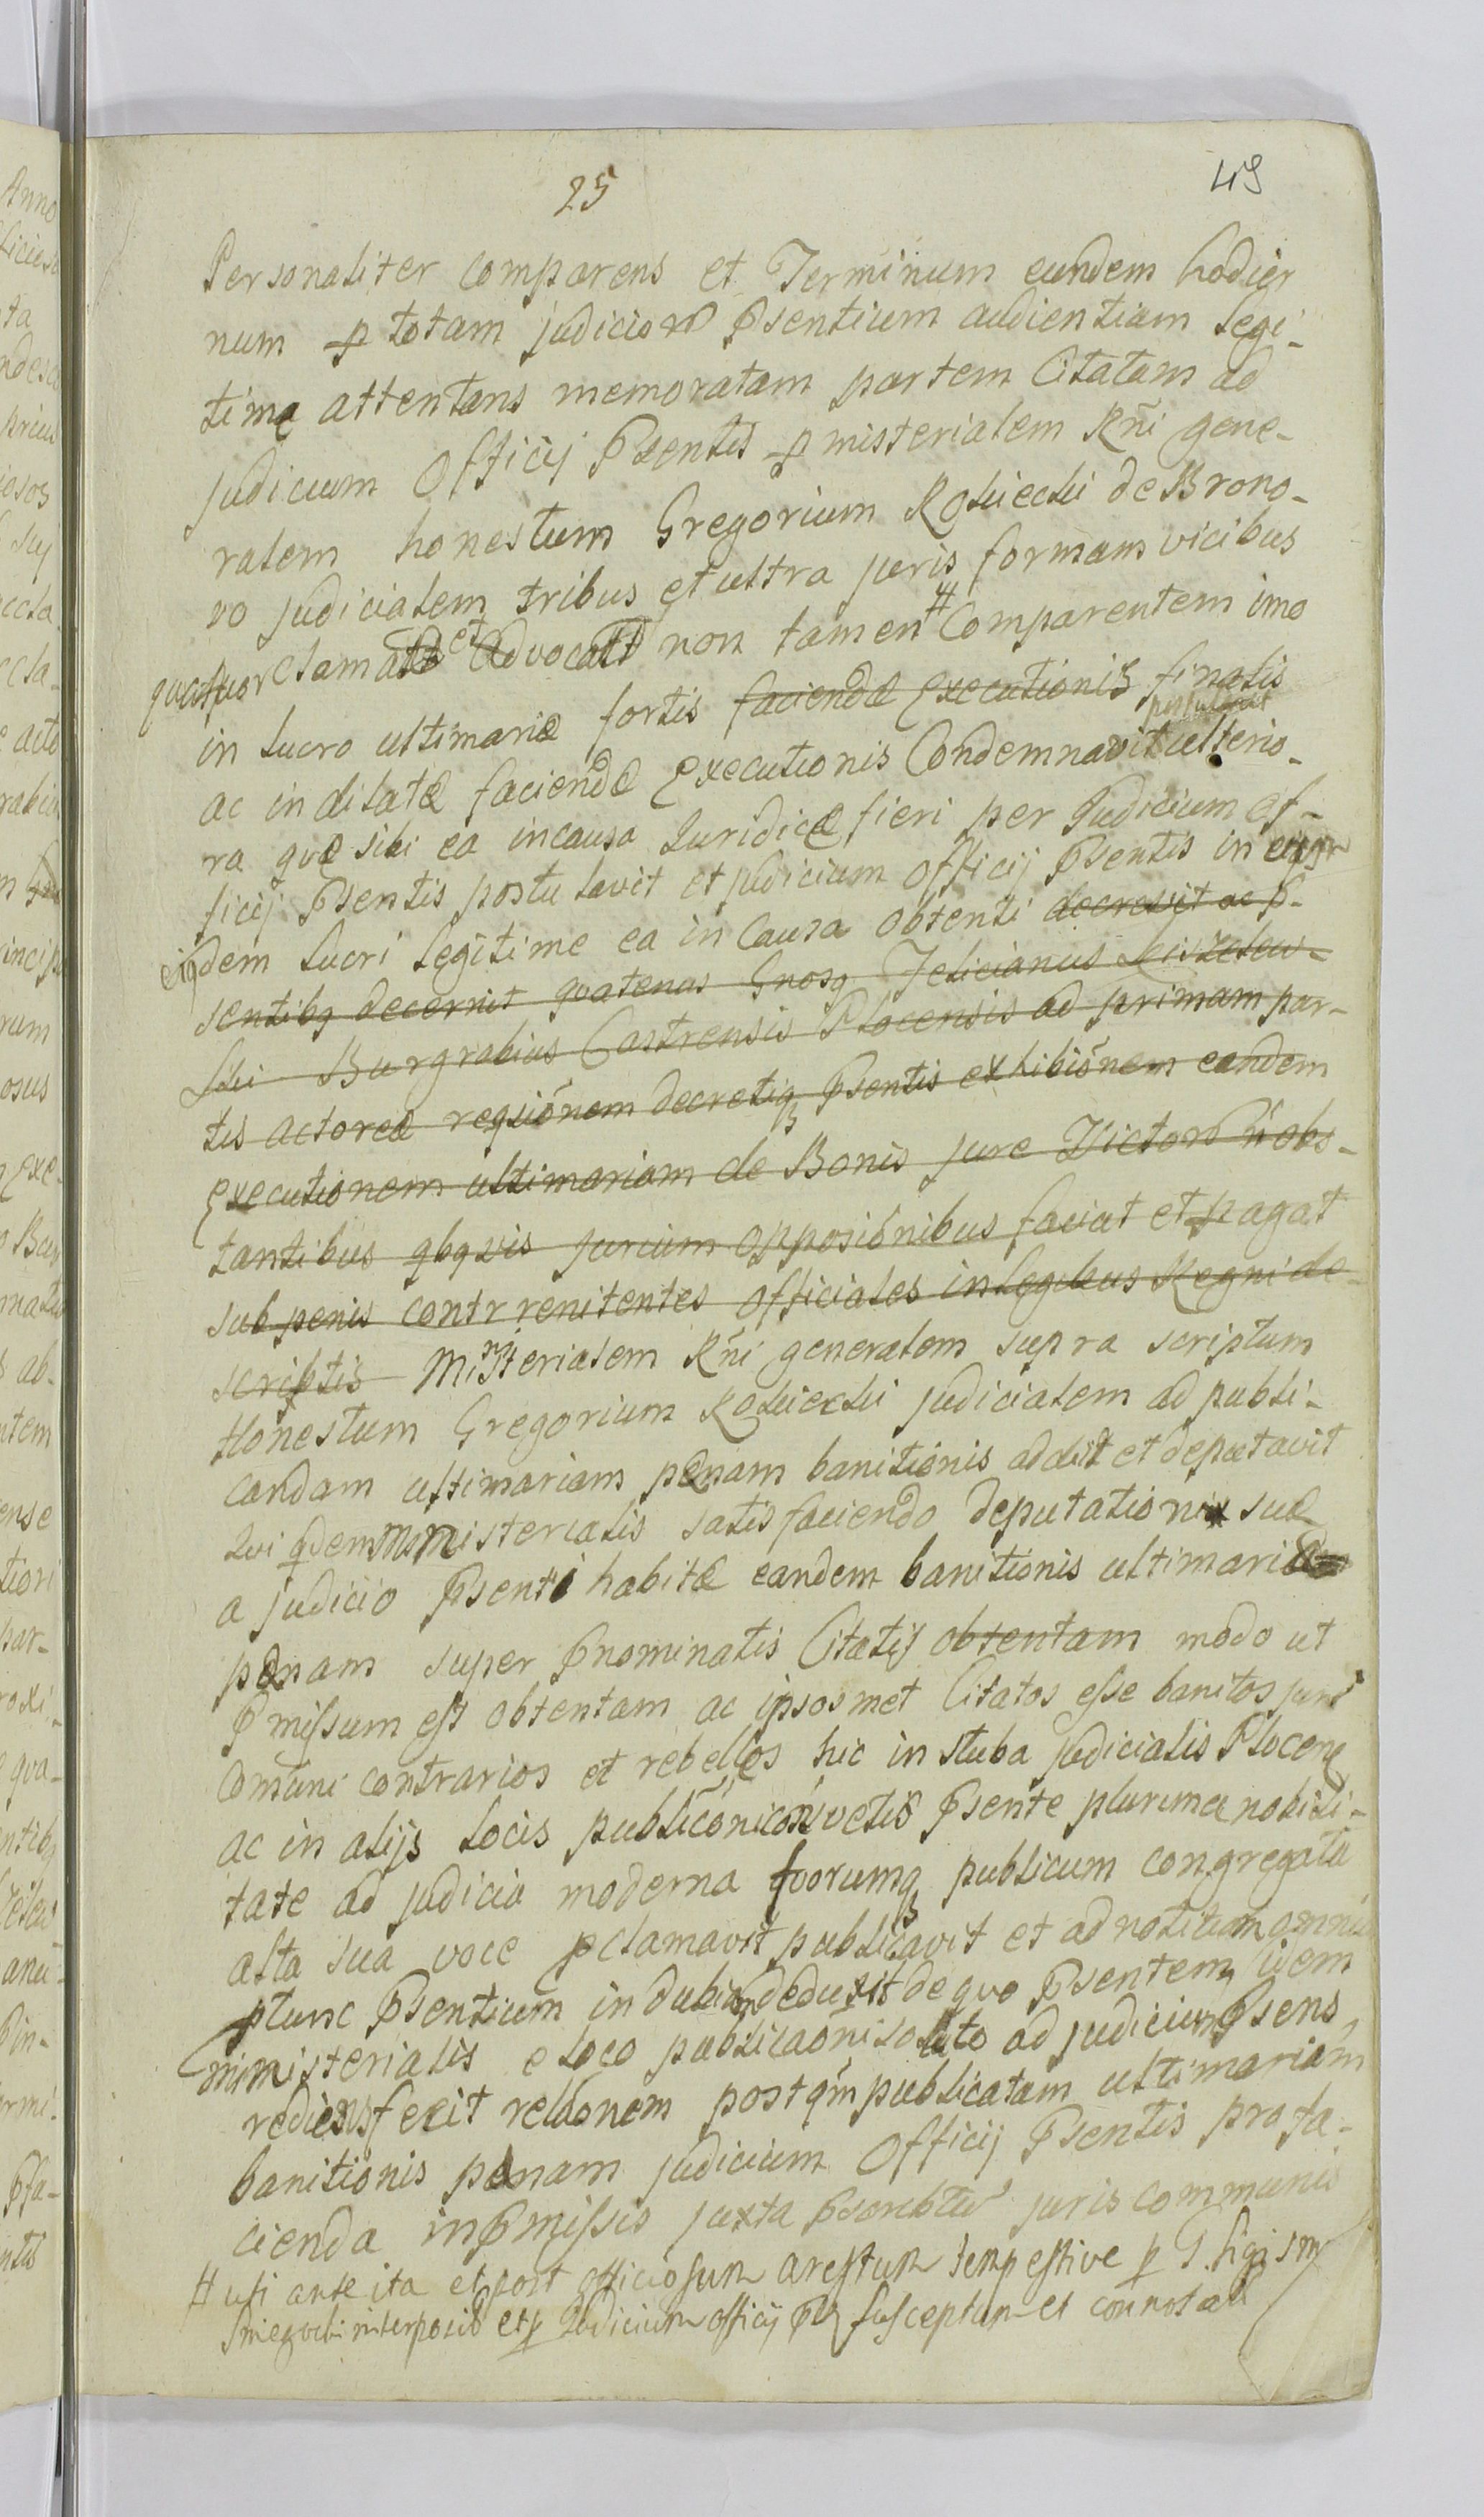 25
49
Personaliter comparens et Terminum eundem hodier
num p totam judicior psentium audientiam legi-
time attentans memoratam partem Citatam ad
judicium Officij psentis p misterialem Rñi gene-
ralem honestum Gregorium Rokicki de Brono-
vo judicialem tribus et ultra juris formam vicibus
quatpor clamat et Advocat non tamen # Comparentem imo
in lucro ultimariæ fortis faciendæ Executionis finalis
ac in dilatæ faciendæ Executionis Condemnavit ulterio-
ra quæ sibi ea in causa Juridicæ fieri per Judicium of-
ficij psentis postulavit et judicium officij psentis in
eiqdem lucri legitime ea in Causa obtenti decrevit ac p-
sentibq decernit quatenus Gnosq Felicianus
Burgrabius Castrensis Plocensis ad primam par-
tis actoreæ reqsiónem decretiq psentis exhibiónem eandem
Executionem ultimariam de Bonis jure Victor ñ obs-
tantibus qbqvis jurium opposiónibus faciat et pagat
sub penis contr renitentes officiales in legibus Regni de-
scriptis Ministerialem Rñi generalem supra scriptum
Honestum Gregorium Rokicki judicialem ad publi-
candam ultimariam penam banitionis addit et deputavit
Qui qdem Ministerialis satisfaciendo deputationi suæ
a judicio psenti habitæ eandem banitionis ultimariæ
penam super pnominatis Citatis obtentam modo ut
pmissum est obtentam ac ipsosmet Citatos esse banitos juri
Comuni contrarios et rebelles hic in stuba judicialis Plocen
ac in alijs locis psente plurima nobili-
tate ad judicia moderna forumq publicum congregata
alta sua voce pclamavit publicavit et ad notitiam omniu
ptunc psentium indubiam deduxit de quo psentem idem
ministerialis e loco publicaoñi soluto ad judicium psens
rediens fecit relãonem post qm publicatam ultimariam
banitionis penam judicium Officij psentis pro fa-
cienda in pmissis juxta pscriptu juris communis
# uti ante ita et post officiosum arestum tempestive p
interposit et p Judicium officij susceptum et connotat